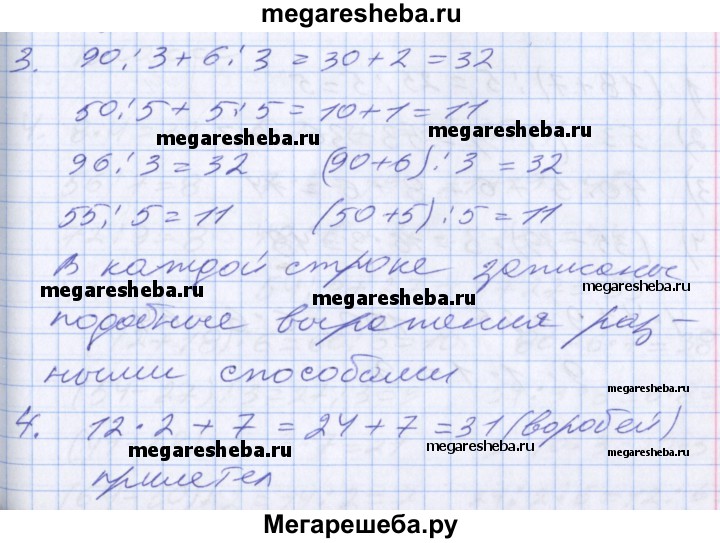 megaresheba.ru
3. 90 : 3 + 6 : 3 = 30 + 2 = 32
50 : 5 + 5 : 5 = 10 + 1 = 11
megaresheba.ru megaresheba.ru
96 : 3 = 32 (90+6) : 3 = 32
55 : 5 = 11 (50+5) : 5 = 11
В каждой строке записаны
megaresheba.ru megaresheba.ru megaresheba.ru
подобные выражения раз-
ными способами
megaresheba.ru
4. 12 · 2 + 7 = 24 + 7 = 31 (воробей)
megaresheba.ru megaresheba.ru megaresheba.ru
прилетел
Мегарешеба.ру